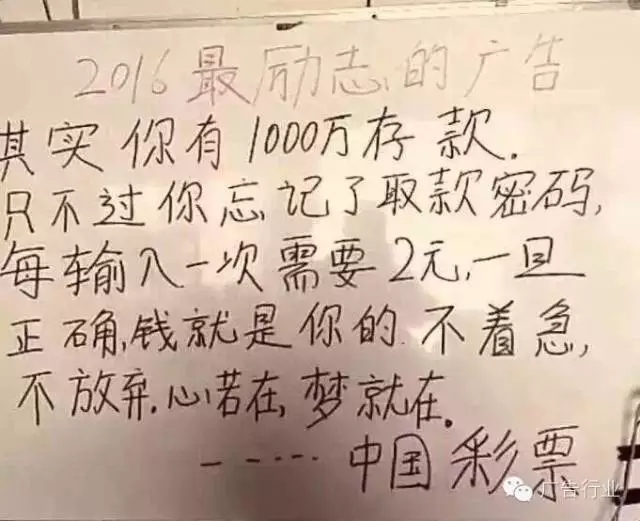 2016最励志的广告
其实你有1000万存款.
只不过你忘记了取款密码,
每输入一次需要2元,一旦
正确,钱就是你的.不着急,
不放弃.心若在,梦就在。
-----中国彩票
广告行业